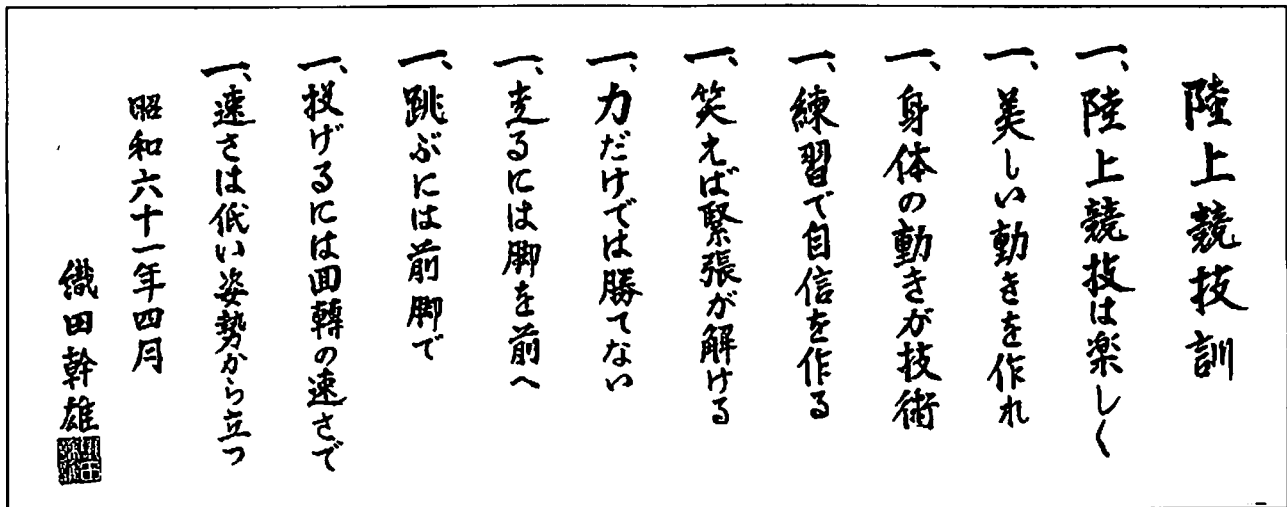 陸上競技訓
一、陸上競技は楽しく
一、美しい動きを作れ
一、身体の動きが技術
一、練習で自信を作る
一、笑えば緊張が解ける
一、力だけでは勝てない
一、走るには脚を前へ
一、跳ぶには前脚で
一、投げるには回轉の速さで
一、速さは低い姿勢から立つ
昭和六十一年四月
織田幹雄